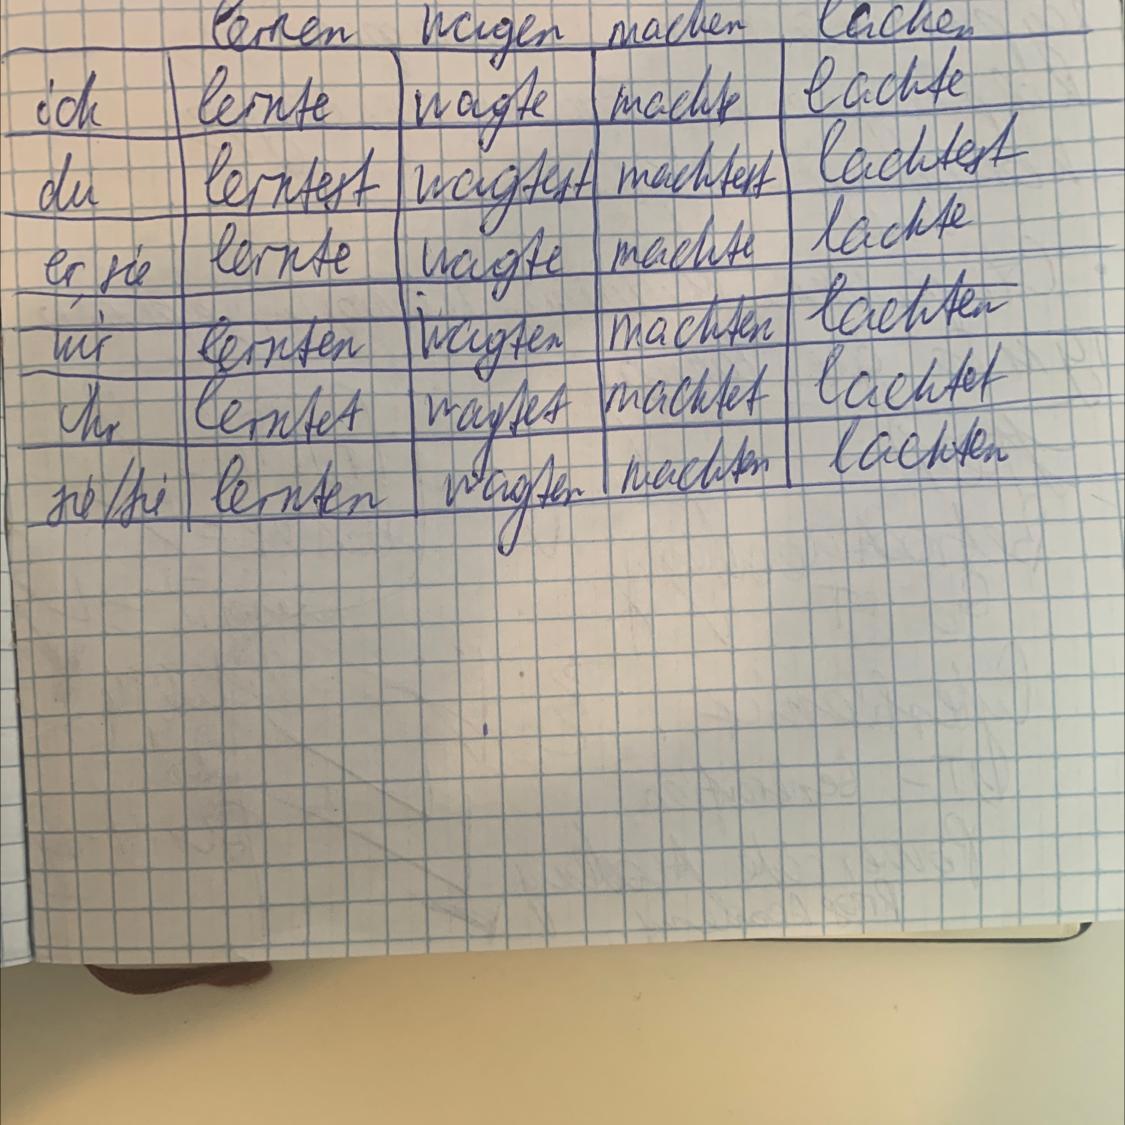 lernen wagen machen lachen
ich lernte wagte machte lachte
du lerntest wagtest machtest lachtest
er sie lernte wagte machte lachte
wir lernten wagten machten lachten
ihr lerntet wagtet machtet lachtet
sie/Sie lernten wagten machten lachten